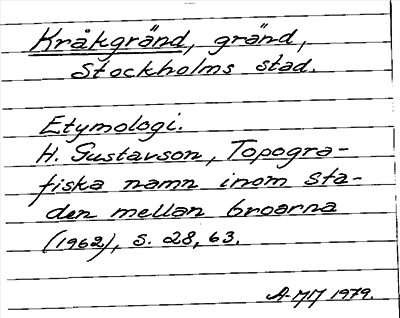 Kråkgränd, gränd,
Stockholms stad.
Etymologi.
H. Gustavson, Topogra-
fiska namn inom sta-
den mellan broarna
(1962), s. 28, 63.
A-MM 1979.